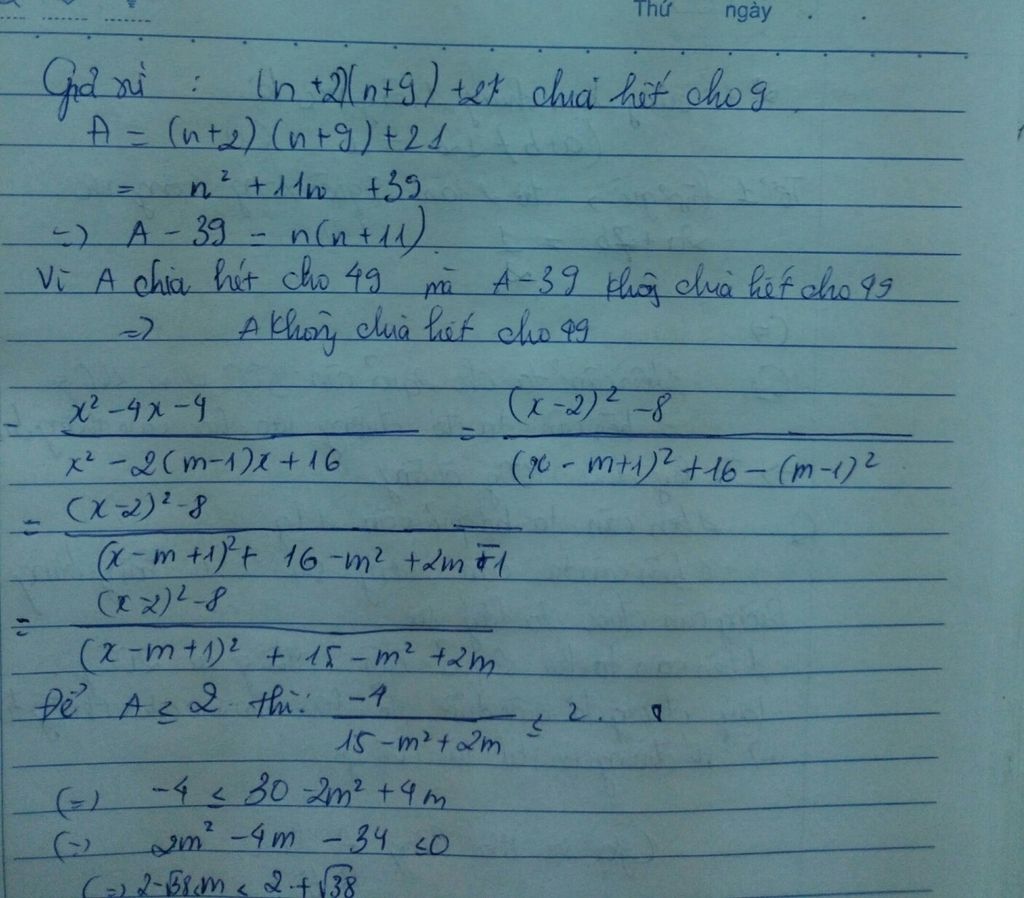 Thứ ngày . .
Giả sử : (n+2)(n+9) +21 chia hết cho 9
A = (n+2) (n+9) +21
= n² + 11n + 39
=> A - 39 = n(n+11)
Vì A chia hết cho 49 mà A-39 không chia hết cho 49
=> A không chia hết cho 49
- \frac{x² - 4x - 4}{x² - 2(m-1)x + 16} = \frac{(x-2)² - 8}{(x - m+1)² + 16 - (m-1)²}
= \frac{(x-2)² - 8}{(x - m+1)² + 16 - m² + 2m - 1}
= \frac{(x-2)² - 8}{(x - m+1)² + 15 - m² + 2m}
Để A ≤ 2 thì: \frac{-4}{15 - m² + 2m} ≤ 2.
(=) -4 ≤ 30 - 2m² + 4m
(=) 2m² - 4m - 34 ≤ 0
(=) 2-√38 ≤ m ≤ 2+√38